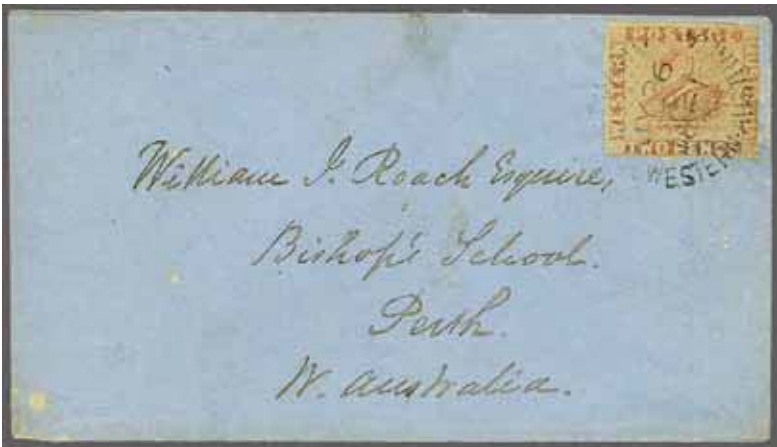 POSTAGE
WESTERN
TWO PENCE
WESTERN
William J. Roach Esquire,
Bishop's School.
Perth.
W. Australia.